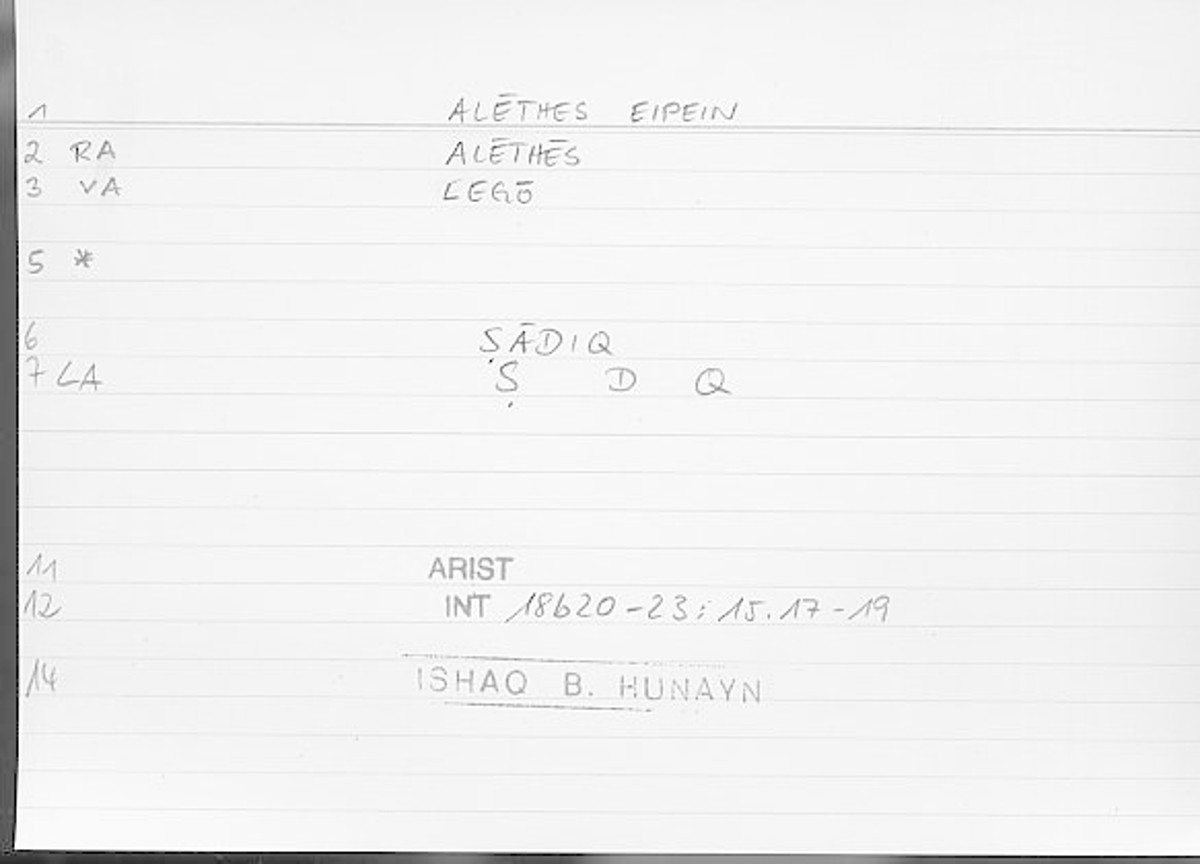 1 ALĒTHES EIPEIN
2 RA ALĒTHĒS
3 VA LEGŌ
5 *
6 ṢĀDIQ
7 LA Ṣ D Q
11 ARIST
12 INT 18b20-23; 15.17-19
14 ISHAQ B. HUNAYN